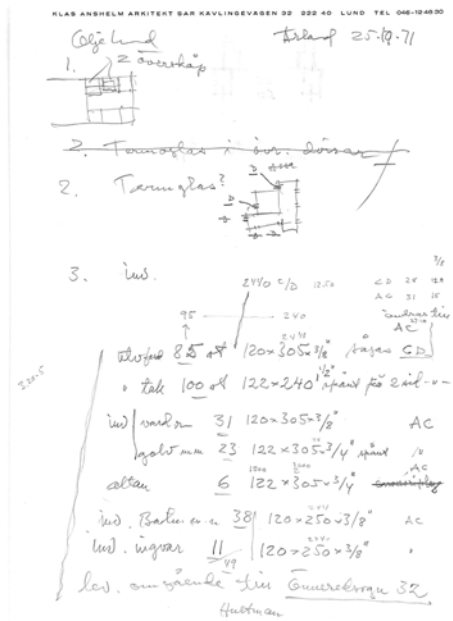 KLAS ANSHELM ARKITEKT SAR KÄVLINGEVÄGEN 32 222 40 LUND TEL 046-124830
Lund 25.10.71
1. 2 överskåp
2. Termoglas i övr. dörrar
2. Termoglas?
D
D
D D
3. inv. 2440 C/D 12.50
3/8
CD 25 12.5
AC 31 15
95 240 ändras till
AC
85 st 120×305×3/8" sågas CD
320-5
" tak 100 st 122×240 1/2" spånt på 2 sid
inv vardr 31 120×305×3/8" AC
golv 23 122×305×3/4" spånt "
1200 AC
altan 6 122×305×3/4"
inv. Badrum 38 120×250×3/8" AC
inv. ingvar 11 120×250×3/8" "
49
lev. omgående till 32
Hultman